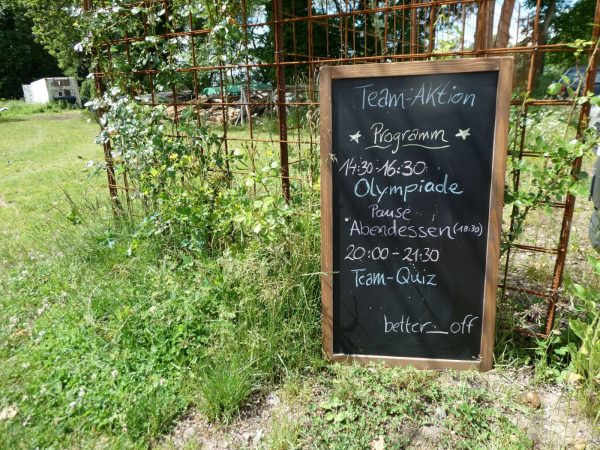 Team-Aktion
Programm
14:30-16:30
Olympiade
Pause
Abendessen (18:30)
20:00 - 21:30
Team-Quiz
better_off